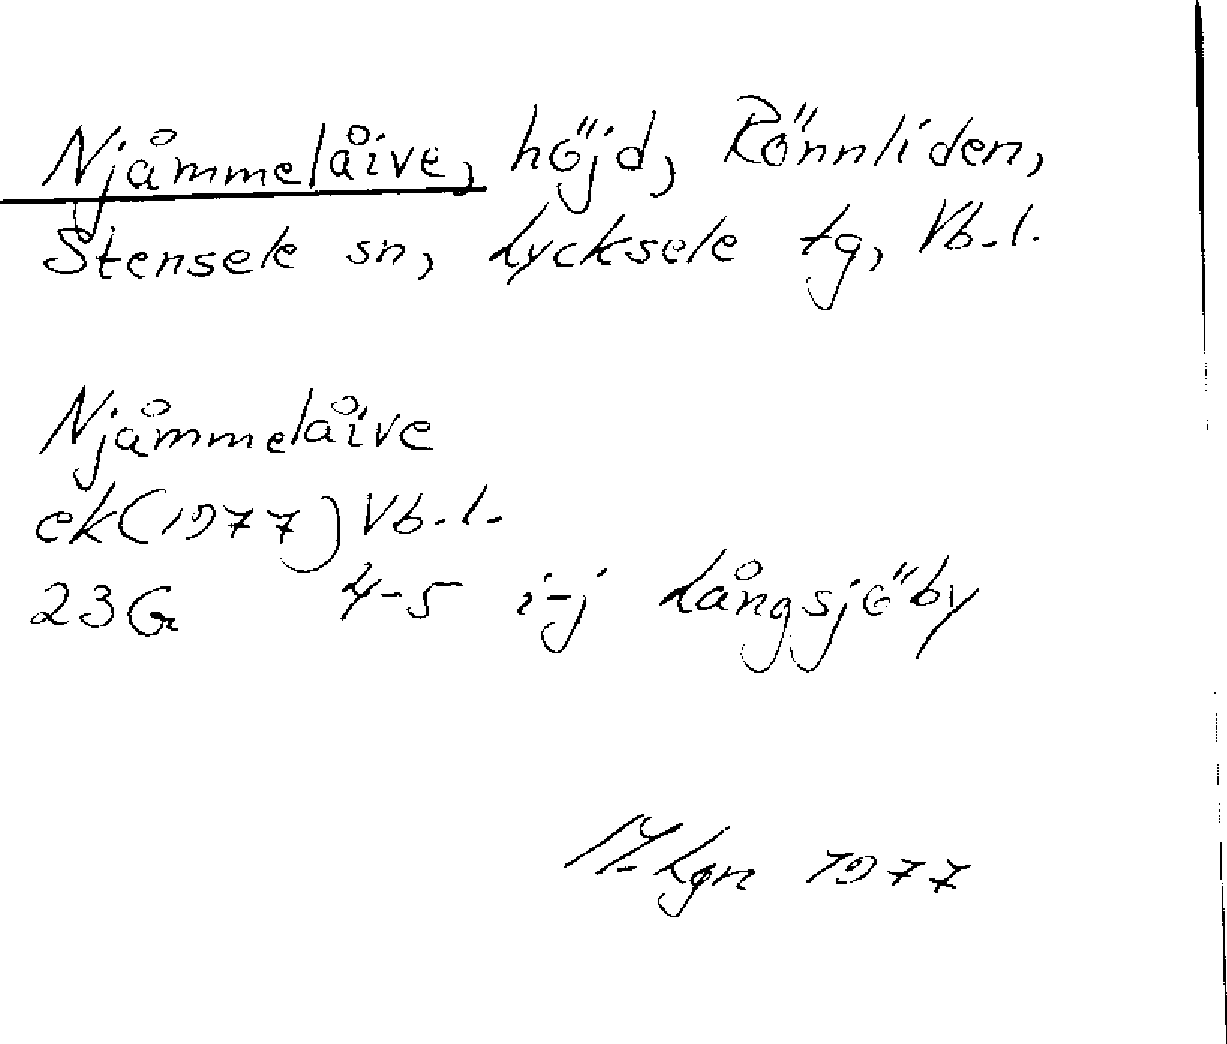 Njåmmelåive, höjd, Rönnliden,
Stensele sn, Lycksele tg, Vb.l.
Njåmmelåive
ek(1977) Vb.l.
23G 4-5 i-j Långsjöby
M. Lgn 1977